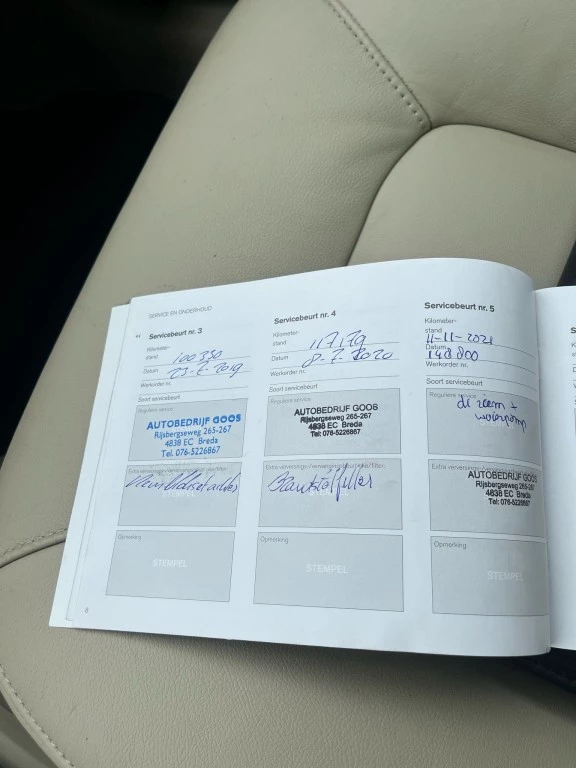 SERVICE EN ONDERHOUD
Servicebeurt nr. 3
Kilometer-
stand 100350
Datum 23-7-2019
Werkorder nr.
Soort servicebeurt
Reguliere service
AUTOBEDRIJF GOOS
Rijsbergseweg 265-267
4838 EC Breda
Tel. 076-5226867
Opmerking
STEMPEL
8
Servicebeurt nr. 4
Kilometer-
stand 117179
Datum 8-7-2020
Werkorder nr.
Soort servicebeurt
Reguliere service
AUTOBEDRIJF GOOS
Rijsbergseweg 265-267
4838 EC Breda
Tel: 076-5226867
Opmerking
STEMPEL
Servicebeurt nr. 5
Kilometer-
stand 11-11-2021
Datum 148800
Werkorder nr.
Soort servicebeurt
Reguliere service
di riem +
waterpomp
AUTOBEDRIJF GOOS
Rijsbergseweg 265-267
4838 EC Breda
Tel: 076-5226867
Opmerking
STEMPEL